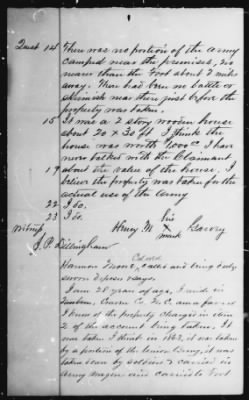 Quest 14 There was no portion of the army
camped near the premises, no
nearer than the Foot about 2 miles
away. There had been no battle or
skirmish near there just before the
property was taken.
15 It was a 2 story wooden house
about 20 x 30 ft. I think the
house was worth $1000.00 I have
never talked with the Claimant
about the value of the house. I
19 believe the property was taken for the
actual use of the Army
22 I do.
23 I do.
his
Henry M x
mark
Witness
J. P. Dillingham
Cold
Harmon called and being duly
sworn deposes & says.
I am 28 years of age, I reside in
Craven Co N.C. am a farmer
I know of the property charged in item
2 of the account being taken. It
was taken I think in 1863, it was taken
by a portion of the Union Army, it was
taken down by soldiers & carried in
Army wagons and carried to Foot